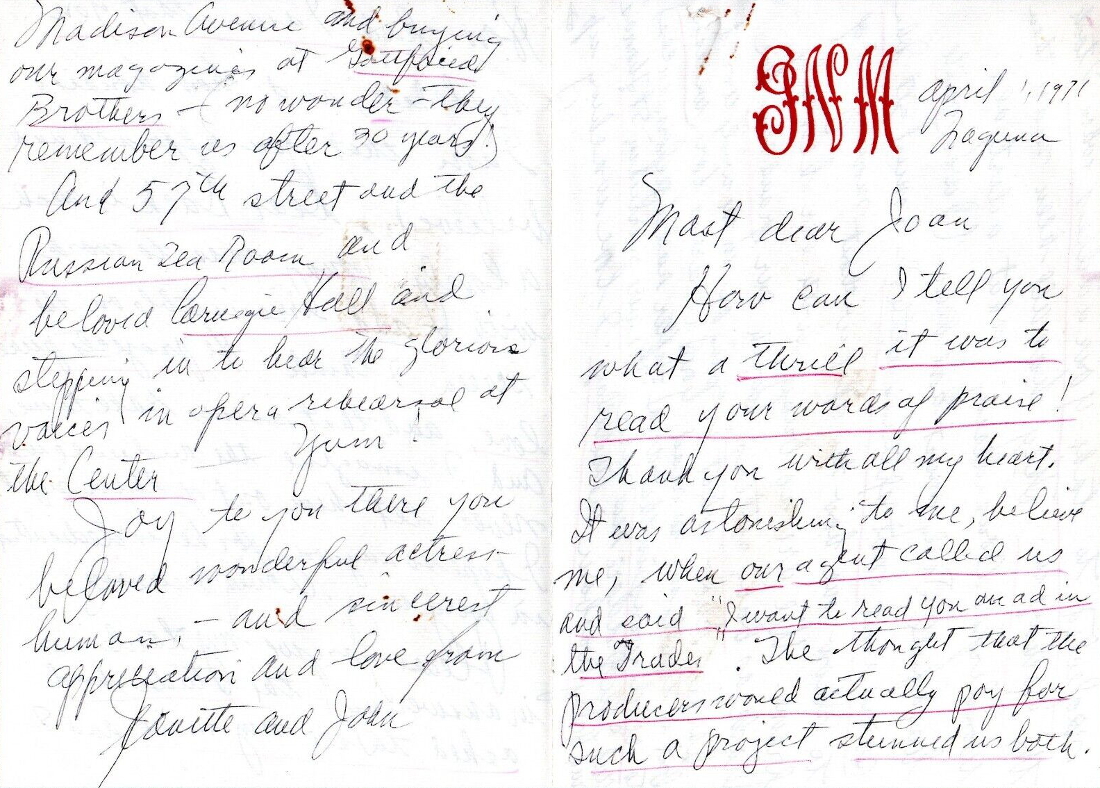 Madison Avenue and buying
our magazines at
Brothers - (no wonder - they
remember us after 30 years!)
And 57th street and the
Russian Tea Room and
beloved Carnegie Hall and
stepping in to hear the glorious
voices in opera rehearsal at
the Center Yum!
Joy to you there you
beloved wonderful actress
human, - and sincerest
appreciation and love from
and John
JNM
april 1, 1971
Laguna
Most dear Joan
How can I tell you
what a thrill it was to
read your words of praise!
Thank you with all my heart.
It was astonishing to me, believe
me, when our agent called us
and said "I want to read you an ad in
the Trades". The thought that the
producers would actually pay for
such a project stunned us both.